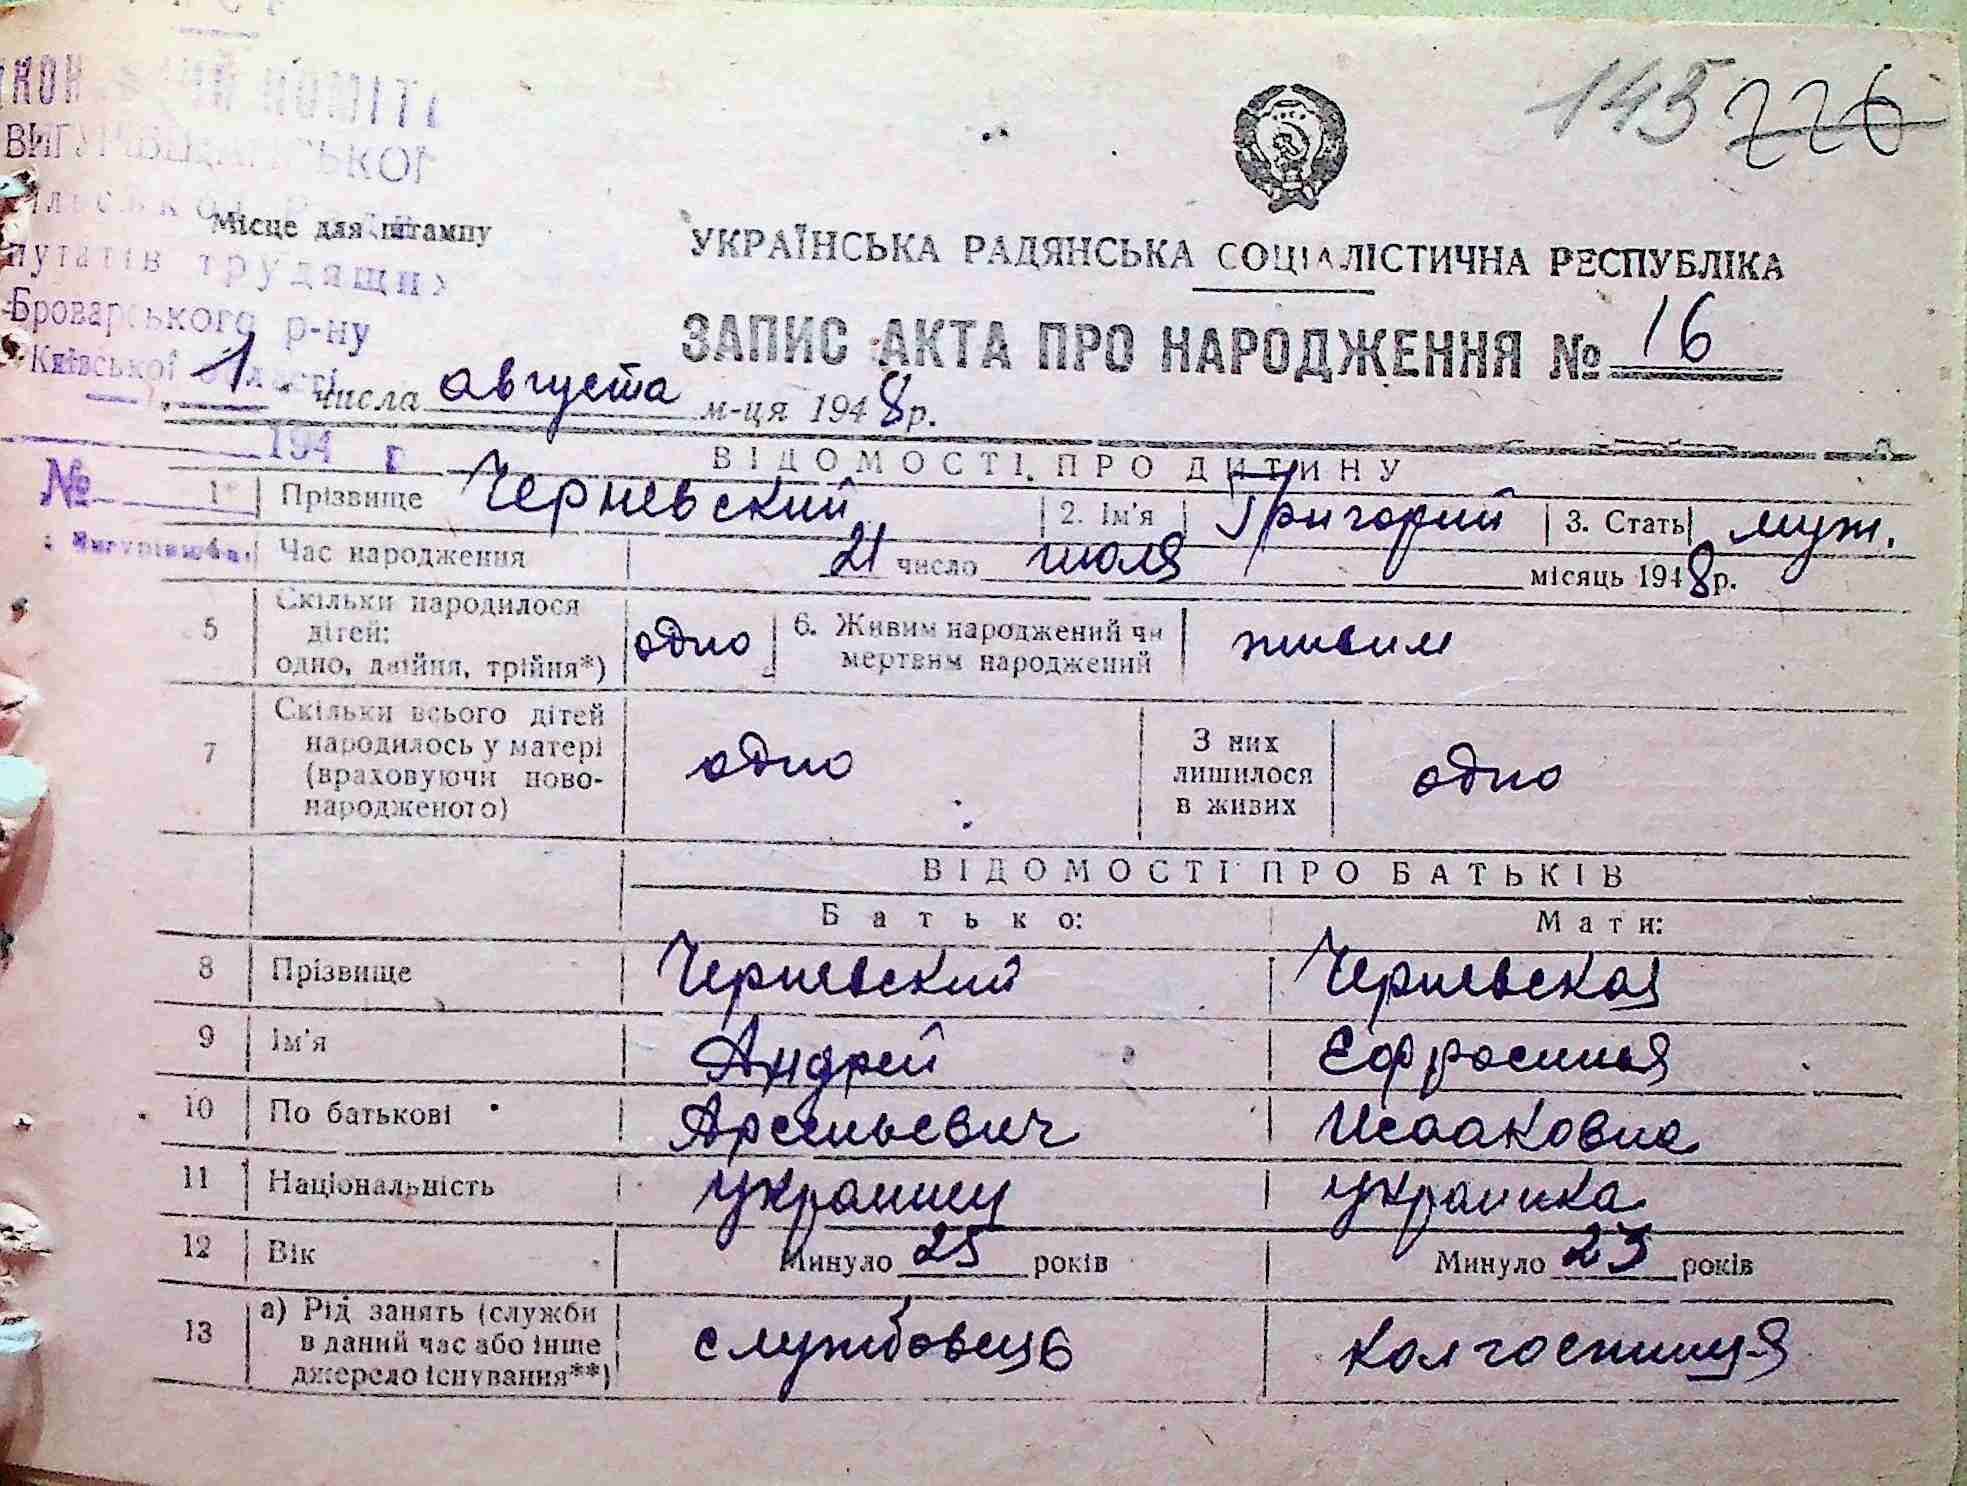 145 226
КОМІТЕ
Місце для штампу
путатів трудящих
Броварського р-ну
Київської області
УКРАЇНСЬКА РАДЯНСЬКА СОЦІАЛІСТИЧНА РЕСПУБЛІКА
ЗАПИС АКТА ПРО НАРОДЖЕННЯ № 16
1 числа августа м-ця 1948 р.
194 р
№
ВІДОМОСТІ ПРО ДИТИНУ
1 Прізвище Черневский 2. Ім'я Григорий 3. Стать муж.
4 Час народження 21 число июля місяць 1948 р.
5 Скільки народилося дітей: одно, двійня, трійня*) одно 6. Живим народжений чи мертвим народжений живим
7 Скільки всього дітей народилось у матері (враховуючи ново-народженого) одно З них лишилося в живих одно
ВІДОМОСТІ ПРО БАТЬКІВ
Батько: Мати:
8 Прізвище Черневский Черневская
9 Ім'я Андрей Ефросинья
10 По батькові Арсеньевич Исааковна
11 Національність украинец украинка
12 Вік Минуло 25 років Минуло 23 років
13 а) Рід занять (служби в даний час або інше джерело існування**) службовець колгоспниця